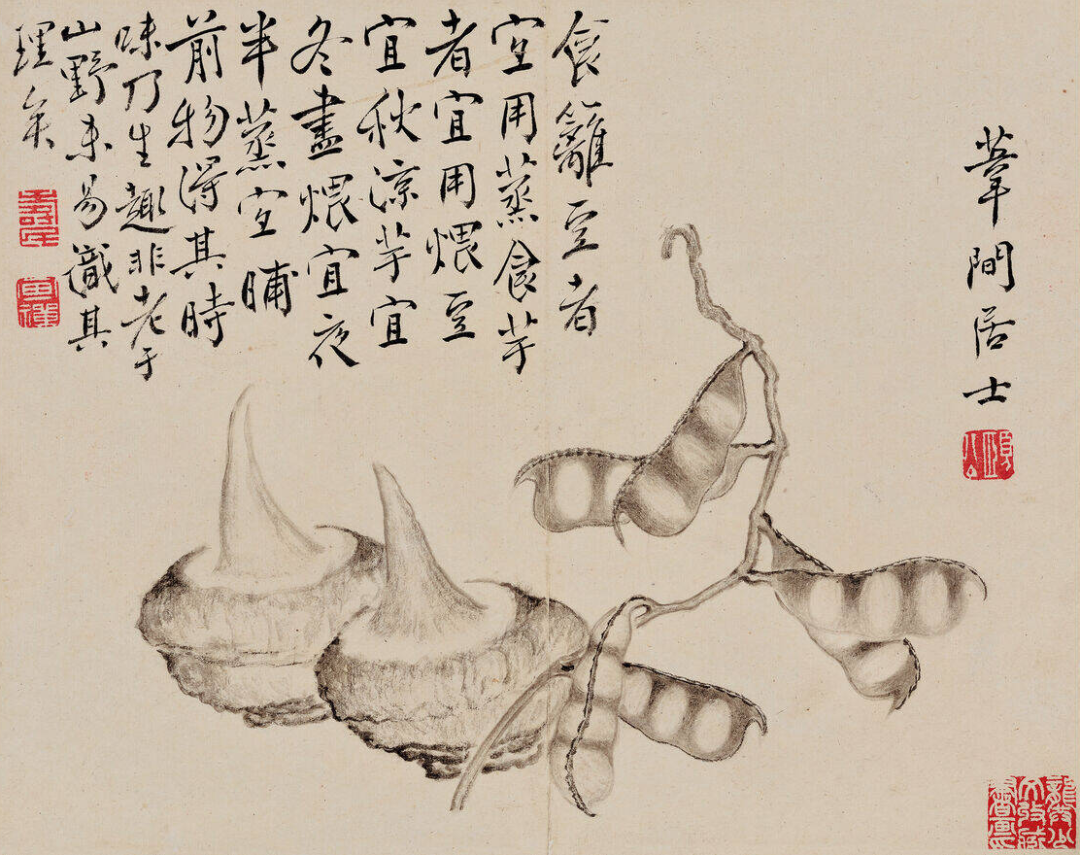 葦間居士
頤公
食籬豆者
宜用蒸食芋
者宜用煨豆
宜秋涼芋宜
冬盡煨宜夜
半蒸宜晡
前物得其時
味乃生趣非老于
山野未易識其
理矣
壽民